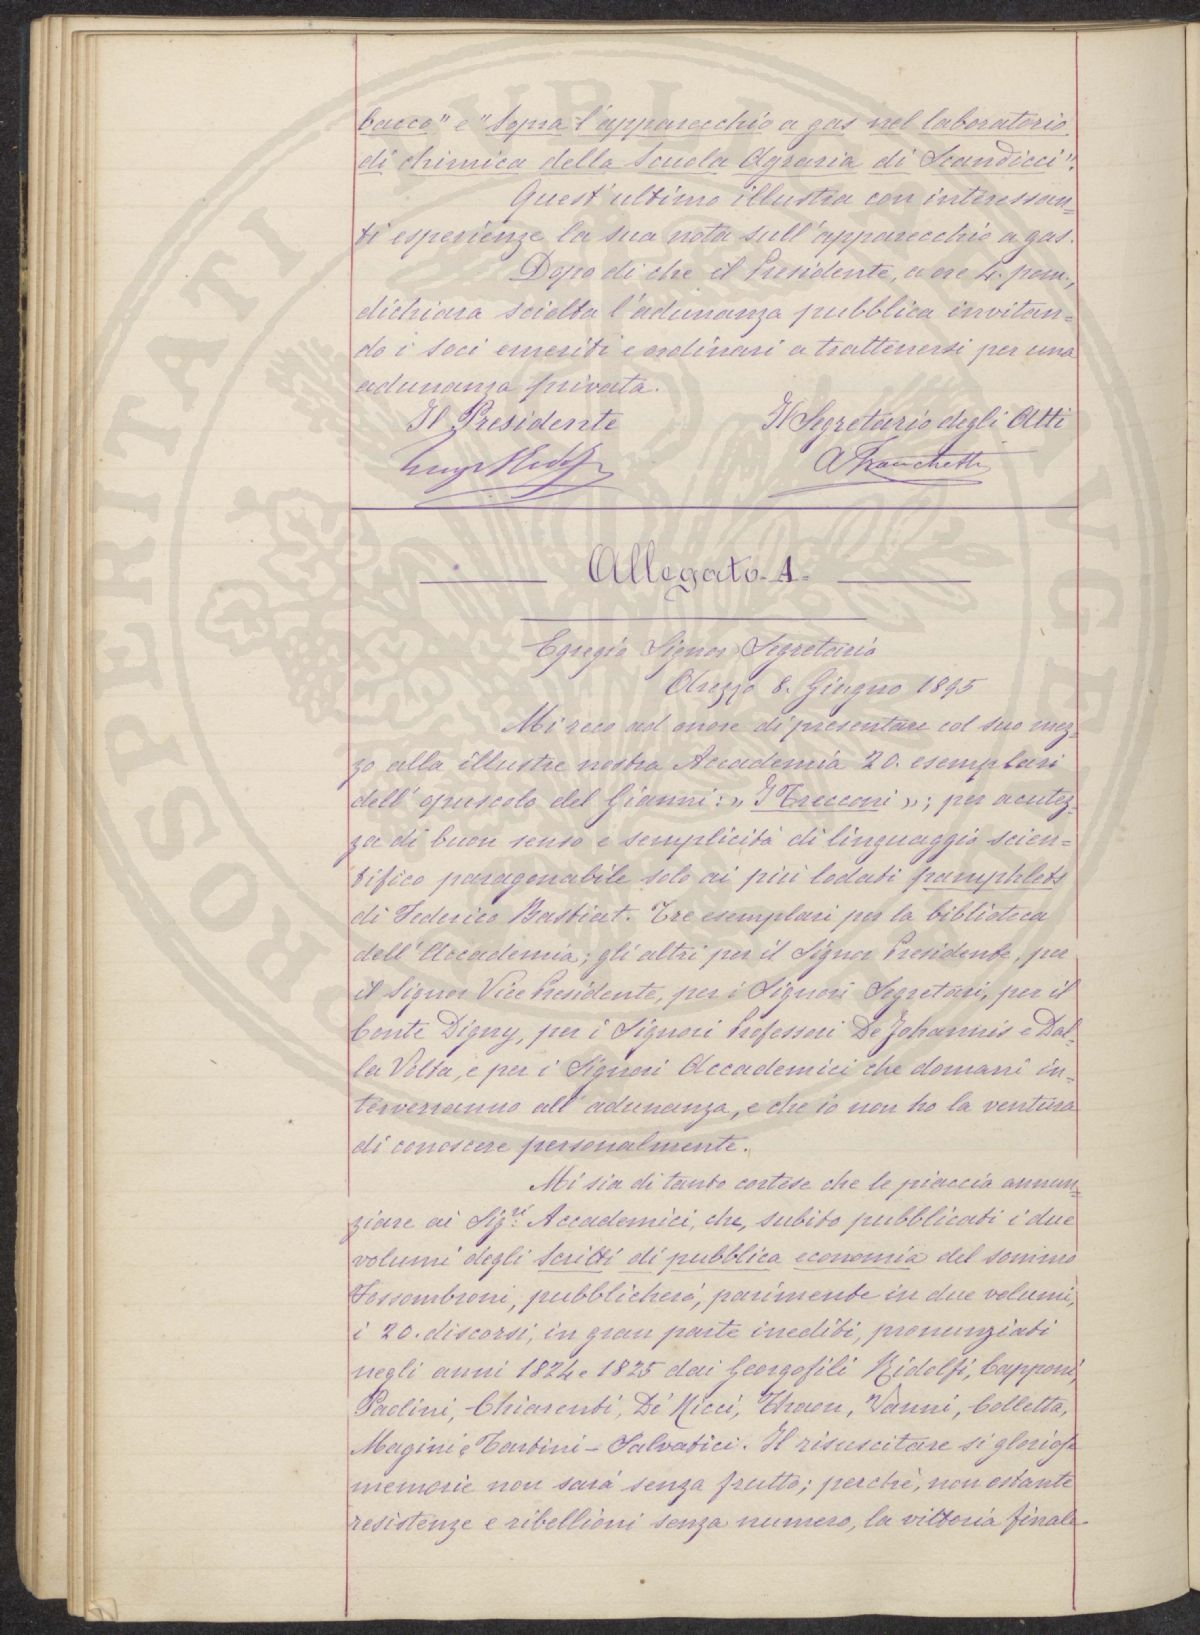 bacco" e "Sopra l'apparecchio a gas nel laboratorio
di chimica della Scuola Agraria di Scandicci".
Quest'ultimo illustra con interessan=
ti esperienze la sua nota sull'apparecchio a gas.
Dopo di che il Presidente, a ore 4. pom.,
dichiara sciolta l'adunanza pubblica invitan=
do i soci emeriti e ordinari a trattenersi per una
adunanza privata.
Il Presidente Il Segretario degli Atti
A Franchetti
Allegato. A.
Egregio Signor Segretario
Arezzo 8. Giugno 1895
Mi reco ad onore di presentare col suo mez=
zo alla illustre nostra Accademia 20. esemplari
dell'opuscolo del Gianni: » I Trecconi »; per acutez=
za di buon senso e semplicità di linguaggio scien=
tifico paragonabile solo ai più lodati pamphlets
di Federico Bastiat. Tre esemplari per la biblioteca
dell'Accademia; gli altri per il Signor Presidente, per
il Signor Vice Presidente, per i Signori Segretari, per il
Conte Digny, per i Signori Professori De Johannis e Dal=
la Volta, e per i Signori Accademici che domani in=
terverranno all'adunanza, e che io non ho la ventura
di conoscere personalmente.
Mi sia di tanto cortese che le piaccia annun=
ziare ai Sigri Accademici, che, subito pubblicati i due
volumi degli scritti di pubblica economia del sommo
Fossombroni, pubblicherò, parimente in due volumi,
i 20. discorsi, in gran parte inediti, pronunziati
negli anni 1824 e 1825 dai Georgofili Ridolfi, Capponi,
Paolini, Chiarenti, De' Ricci, Thaon, Vanni, Colletta,
Magini e Tartini-Salvatici. Il risuscitare sì gloriose
memorie non sarà senza frutto; perchè, non ostante
resistenze e ribellioni senza numero, la vittoria finale
PROSPERITATI PUBLICAE AUGENDAE